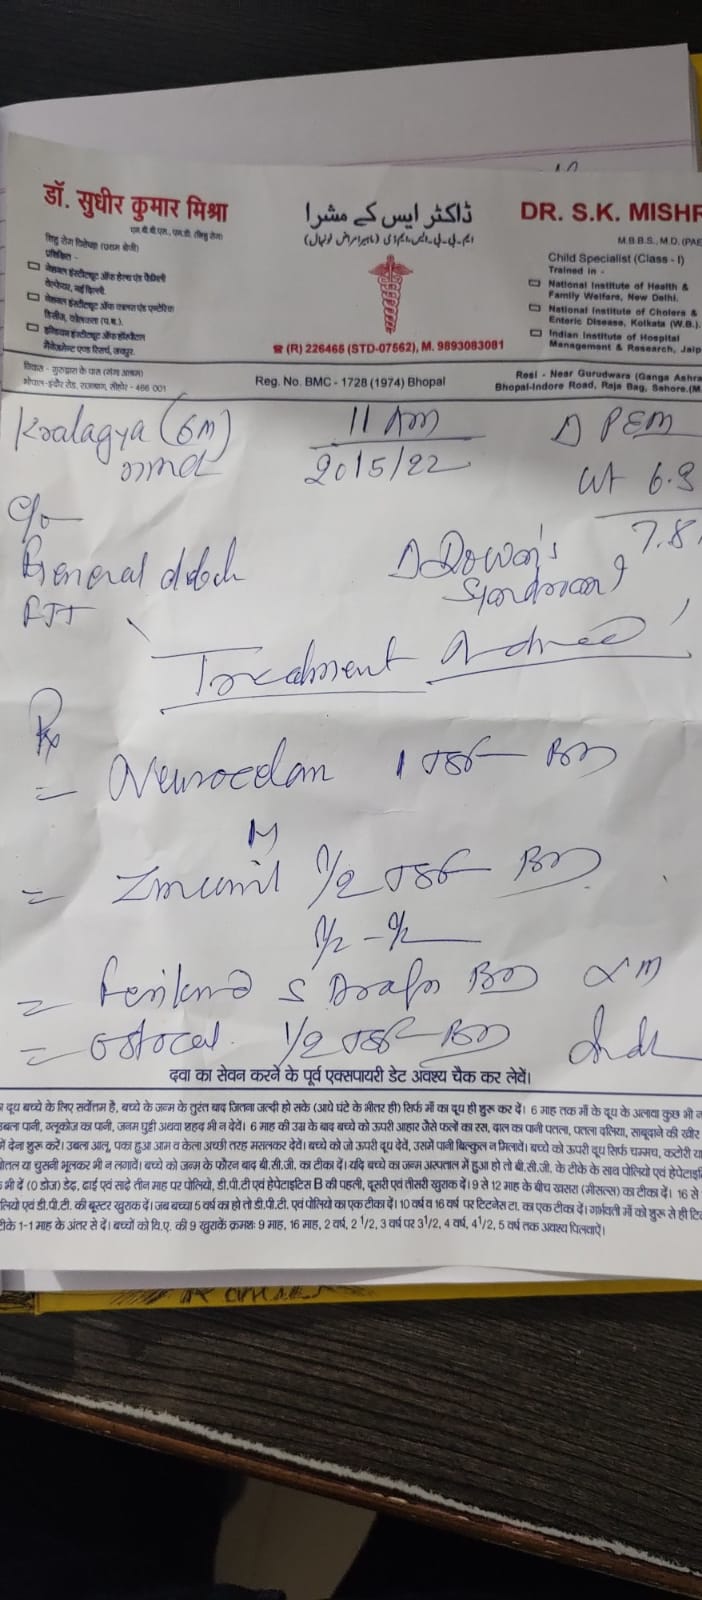 डॉ. सुधीर कुमार मिश्रा
एम.बी.बी.एस., एम.डी. (शिशु रोग)
शिशु रोग विशेषज्ञ (प्रथम श्रेणी)
प्रशिक्षित -
नेशनल इंस्टीट्यूट ऑफ हेल्थ एंड फैमिली
वेल्फेयर, नई दिल्ली.
नेशनल इंस्टीट्यूट ऑफ कालरा एंड एन्टेरिक
डिसीज, कोलकाता (प.बं.).
इण्डियन इंस्टीट्यूट ऑफ हॉस्पीटल
मैनेजमेन्ट एण्ड रिसर्च, जयपुर.
ڈاکٹر ایس کے مشرا
DR. S.K. MISHR
M.B.B.S., M.D. (PAE
Child Specialist (Class - I)
Trained in -
National Institute of Health &
Family Welfare, New Delhi.
National Institute of Cholera &
Enteric Disease, Kolkata (W.B.).
Indian Institute of Hospital
Management & Research, Jaip
☎ (R) 226465 (STD-07562), M. 9893083081
निवास - गुरुद्वारा के पास (गंगा आश्रम)
भोपाल-इंदौर रोड, राजबाग, सीहोर - 466 001
Reg. No. BMC - 1728 (1974) Bhopal
Resi - Near Gurudwara (Ganga Ashra
Bhopal-Indore Road, Raja Bag, Sehore.(M.
(6M)
11 AM
20/5/22
PEM
Wt 6.9
7.8
c/o
General
FTT
Down's
Treatment
Rx
1 BD
1/2 BD
1/2 - 1/2
5 Drops BD
Ostocal 1/2 BD
दवा का सेवन करने के पूर्व एक्सपायरी डेट अवश्य चैक कर लेवें।
दूध बच्चे के लिए सर्वोत्तम है, बच्चे के जन्म के तुरंत बाद जितना जल्दी हो सके (आधे घंटे के भीतर ही) सिर्फ माँ का दूध ही शुरू कर दें। 6 माह तक माँ के दूध के अलावा कुछ भी न
उबला पानी, ग्लूकोज का पानी, जनम घुट्टी अथवा शहद भी न देवें। 6 माह की उम्र के बाद बच्चे को ऊपरी आहार जैसे फलों का रस, दाल का पानी पतला, पतला दलिया, साबूदाने की खीर
में देना शुरू करें। उबला आलू, पका हुआ आम व केला अच्छी तरह मसलकर देवें। बच्चे को जो ऊपरी दूध देवें, उसमें पानी बिल्कुल न मिलावें। बच्चे को ऊपरी दूध सिर्फ चम्मच, कटोरी या
बोतल या चुसनी भूलकर भी न लगावें। बच्चे को जन्म के फौरन बाद बी.सी.जी. का टीका दें। यदि बच्चे का जन्म अस्पताल में हुआ हो तो बी.सी.जी. के टीके के साथ पोलियो एवं हेपेटाइटि
भी दें (0 डोज) डेढ़, ढाई एवं साढ़े तीन माह पर पोलियो, डी.पी.टी एवं हेपेटाइटिस B की पहली, दूसरी एवं तीसरी खुराक दें। 9 से 12 माह के बीच खसरा (मीसल्स) का टीका दें। 16 से
लियो एवं डी.पी.टी. की बूस्टर खुराक दें। जब बच्चा 5 वर्ष का हो तो डी.पी.टी. एवं पोलियो का एक टीका दें। 10 वर्ष व 16 वर्ष पर टिटनेस टा. का एक टीका दें। गर्भवती माँ को शुरू से ही टि
टीके 1-1 माह के अंतर से दें। बच्चों को वि.ए. की 9 खुराकें क्रमशः 9 माह, 16 माह, 2 वर्ष, 2 1/2, 3 वर्ष पर 3 1/2, 4 वर्ष, 4 1/2, 5 वर्ष तक अवश्य पिलवाऐं।